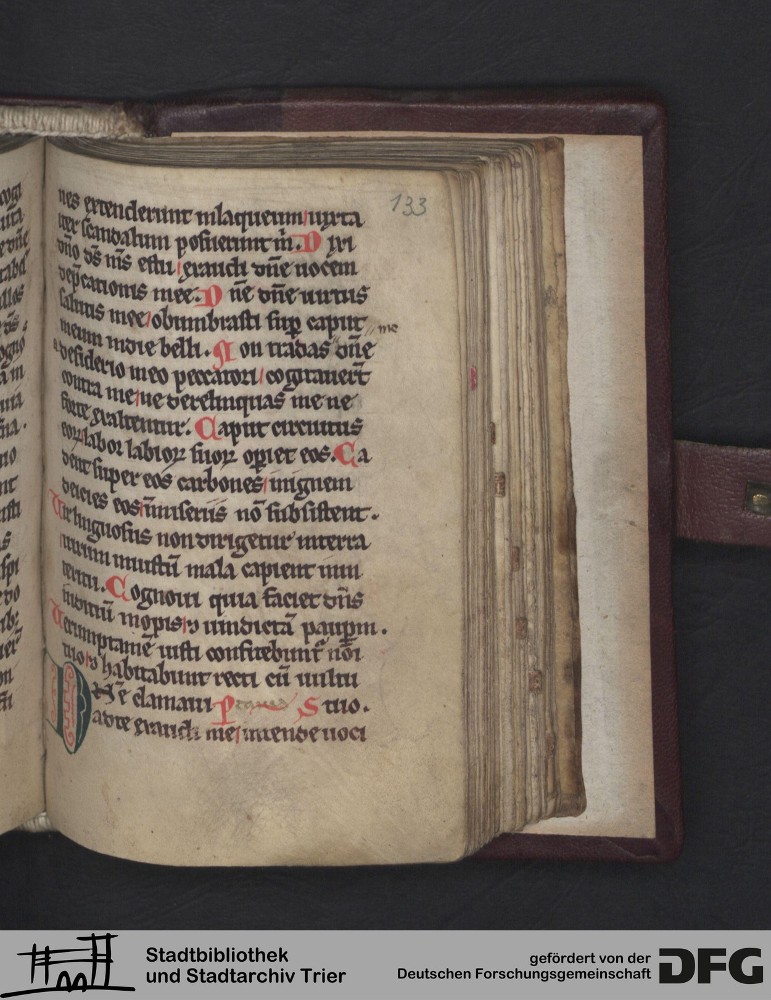 133
nes extenderunt in laqueum iuxta
iter scandalum posuerunt m̄. D ixi
dn̄o ds̄ m̄s es tu exaudi dn̄e uocem
dep̄cationis mee. D n̄e dn̄e uirtus
salutis mee obumbrasti sup̄ caput
meum in die belli. N on tradas dn̄e me
a desiderio meo peccatori cogitauer̄t
contra me ne derelinquas me ne
forte exaltentur. C aput circuitus
eoꝝ labor labioꝝ suoꝝ opiet eos. C a
dent super eos carbones in ignem
deicies eos in miseriis nō subsistent.
Vir linguosus non dirigetur in terra
uirum iniustū mala capient in in
teritu. C ognoui quia faciet dn̄s
iudiciū inopis ⁊ uindictā paup̄m.
Verumptamē iusti confitebunt̄ nōi
tuo ⁊ habitabunt recti cū uultu
D Ne clamaui S tuo.
ad te exaudi me intende uoci
Stadtbibliothek
und Stadtarchiv Trier
gefördert von der
Deutschen Forschungsgemeinschaft
DFG